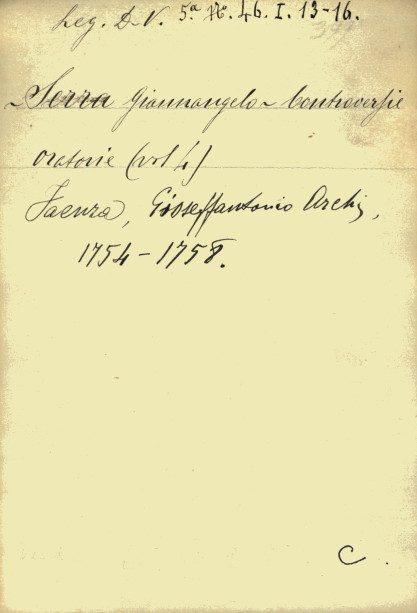 Leg. D. V. 5.ª N.º 46. I. 13-16.
Serra Giannangelo - Controversie
oratorie (vol 4)
Faenza, Gioseffantonio Archi,
1754-1758.
C.